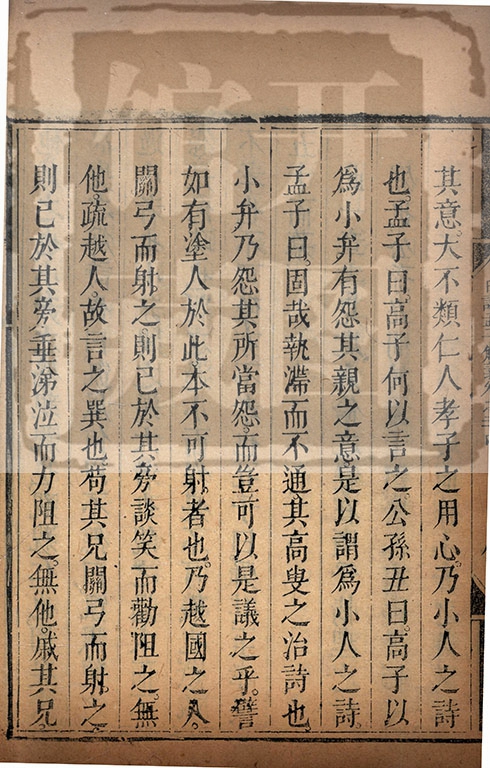 其意大不類仁人孝子之用心乃小人之詩
也孟子曰高子何以言之公孫丑曰高子以
爲小弁有怨其親之意是以謂爲小人之詩
孟子曰固哉執滯而不通其高叟之治詩也
小弁乃怨其所當怨而豈可以是議之乎譬
如有塗人於此本不可射者也乃越國之人
關弓而射之則己於其旁談笑而勸阻之無
他疏越人故言之巽也苟其兄關弓而射之
則己於其旁垂涕泣而力阻之無他戚其兄